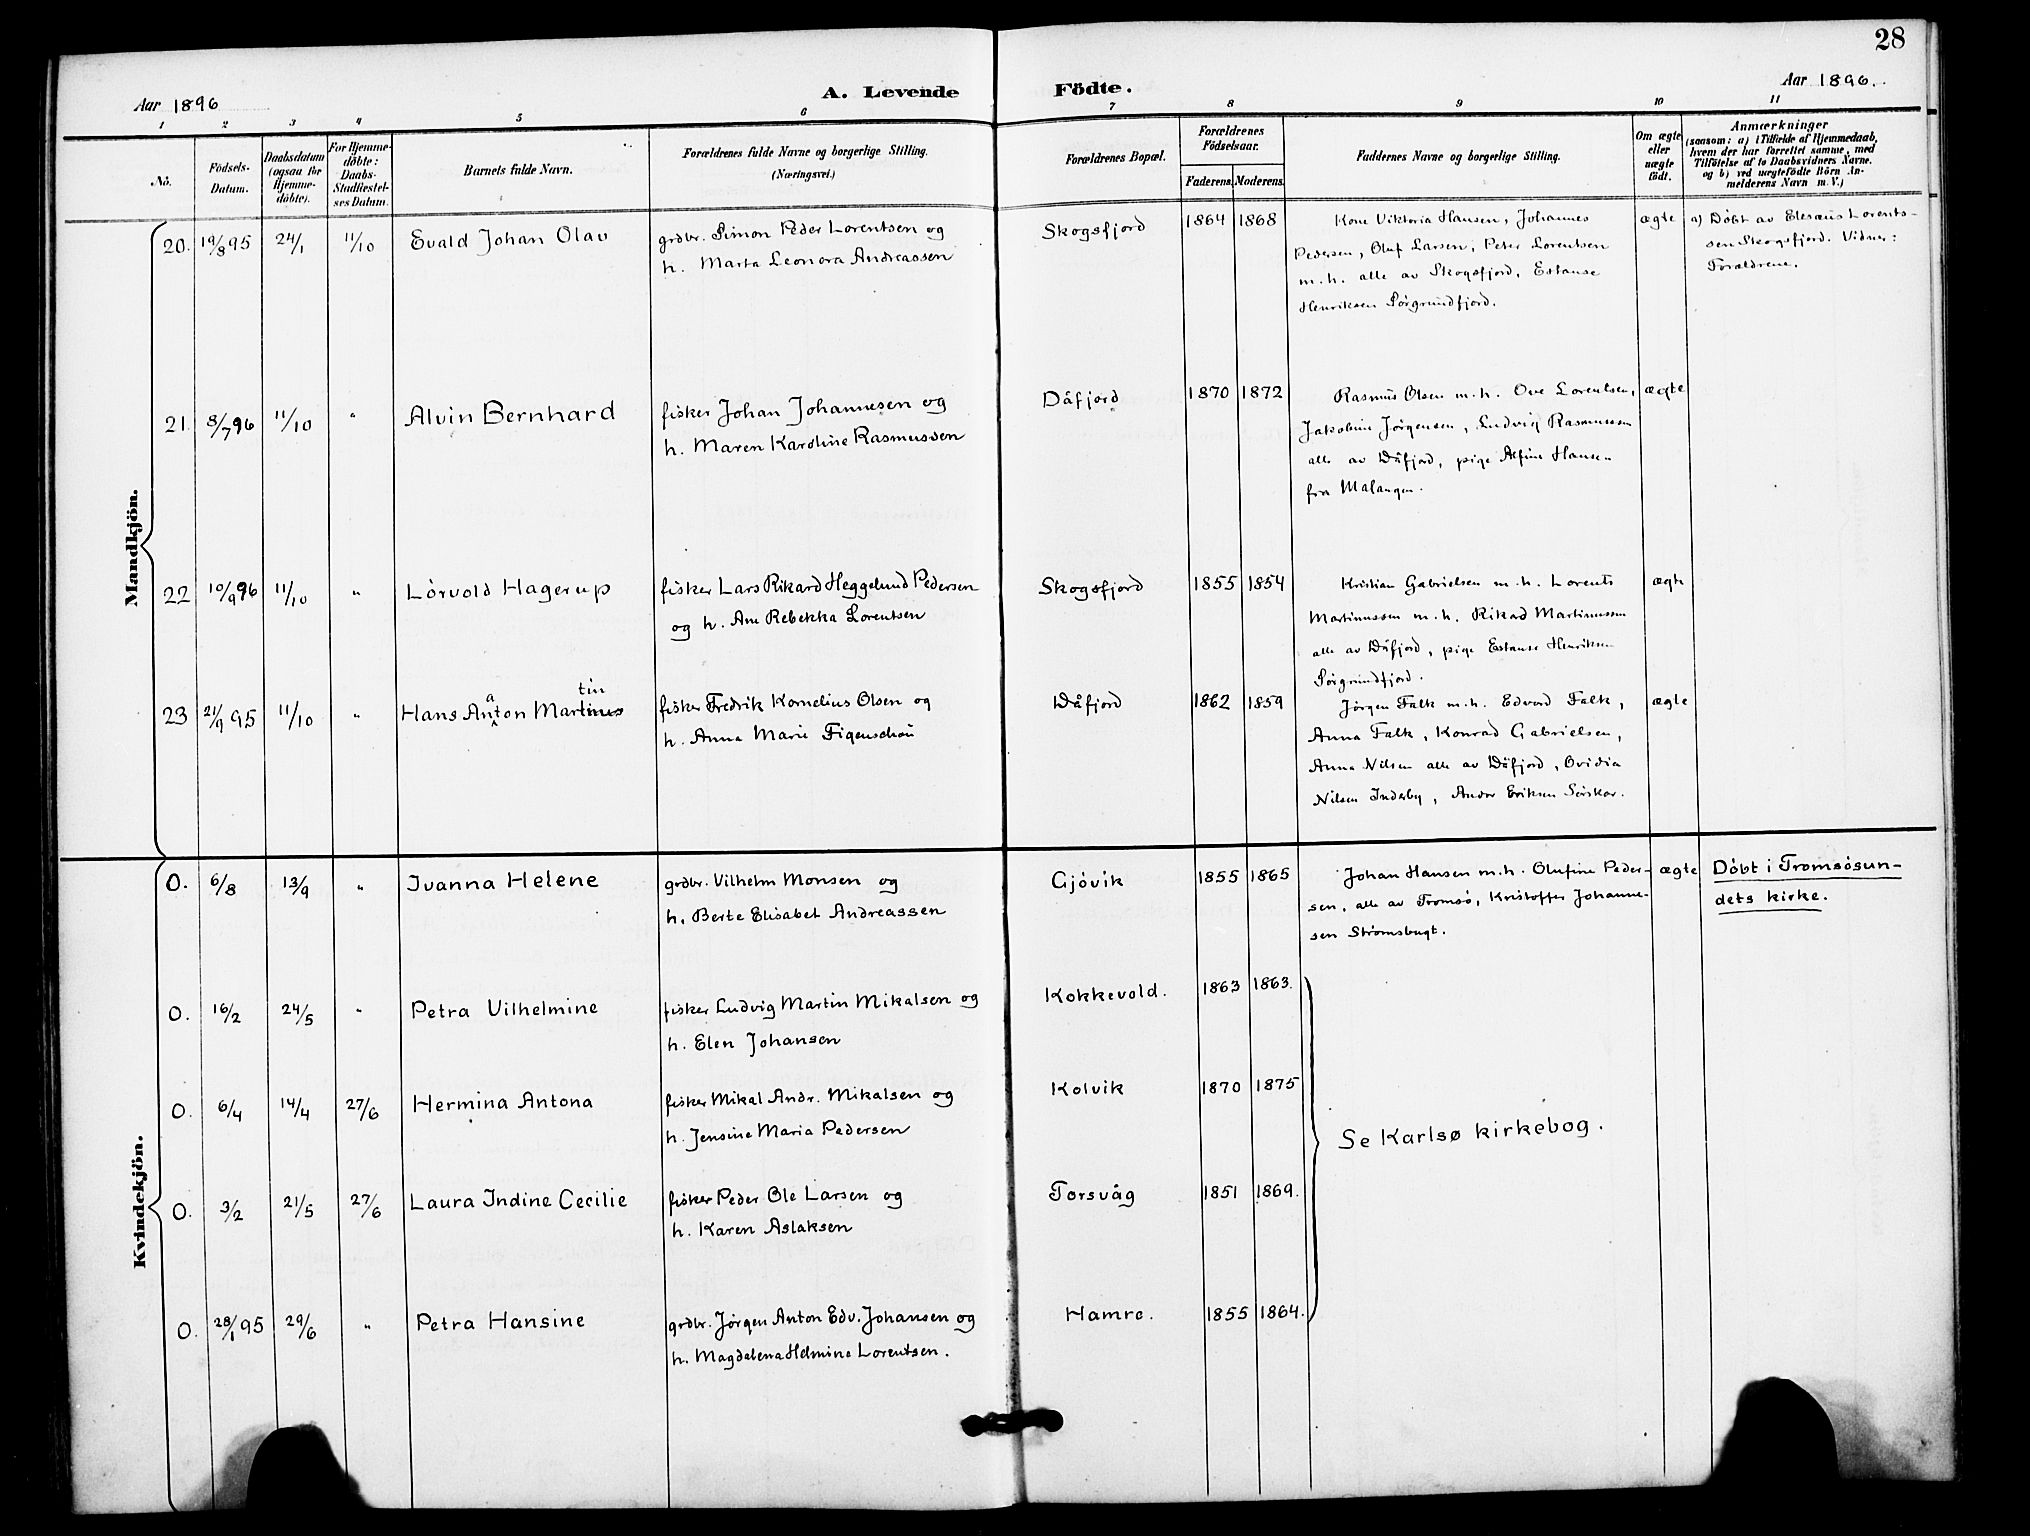 28
Aar 1896
A. Levende
Födte.
Aar 1896.
1 2 3 4 5 6 7 8 9 10 11
No.
Födsels-
Datum.
Daabsdatum
(ogsaa for
Hjemme-
døbte).
For Hjemme-
døbte:
Daabs-
Stadfæstel-
ses Datum.
Barnets fulde Navn.
Forældrenes fulde Navne og borgerlige Stilling.
(Næringsvei.)
Forældrenes Bopæl.
Forældrenes
Födselsaar.
Faderens. Moderens.
Faddernes Navne og borgerlige Stilling.
Om ægte
eller
uægte
født.
Anmærkninger
(saasom: a) i Tilfælde af Hjemmedaab,
hvem der har forrettet samme, med
Tilføielse af to Daabsvidners Navne.
og b) ved uægtefødte Börn An-
melderens Navn m. V.)
Mandkjön.
20. 19/8 95 24/1 11/10 Evald Johan Olav
grdbr. Simon Peder Lorentsen og
h. Marta Leonora Andreassen
Skogsfjord 1864 1868
Kone Viktoria Hansen, Johannes
Pedersen, Oluf Larsen, Peter Lorentsen
m.h. alle av Skogsfjord, Estanse
Henriksen Sörgrundfjord.
ægte
a) Döbt av Elesæus Lorents-
sen Skogsfjord. Vidner:
Forældrene.
21. 8/7 96 11/10 " Alvin Bernhard
fisker Johan Johannesen og
h. Maren Karoline Rasmussen
Dåfjord 1870 1872
Rasmus Olsen m.h. Ove Lorentsen,
Jakobine Jørgensen, Ludvig Rasmussen
alle av Dåfjord, pige Alfine Hansen
fra Malangen.
ægte
22 10/9 96 11/10 " Lörvold Hagerup
fisker Lars Rikard Heggelund Pedersen
og h. Ane Rebekka Lorentsen
Skogsfjord 1855 1854
Kristian Gabrielsen m.h. Lorents
Martinussen m.h. Rikard Martinussen
alle av Dåfjord, pige Estanse Henriksen
Sörgrundfjord.
ægte
23 21/9 95 11/10 " Hans Anaton Martinus tin
fisker Fredrik Kornelius Olsen og
h. Anna Marie Figenschou
Dåfjord 1862 1859
Jörgen Falk m.h. Edvard Falk,
Anna Falk, Konrad Gabrielsen,
Anna Nilsen alle av Dåfjord, Ovidia
Nilsen Inderby, Andor Eriksen Sörskar.
ægte
Kvindekjön.
0. 6/8 13/9 " Ivanna Helene
grdbr. Vilhelm Monsen og
h. Berte Elisabet Andreassen
Gjövik 1855 1865
Johan Hansen m.h. Olufine Peder-
sen, alle av Tromsö, Kristoffer Johanne-
sen Strömsbugt.
ægte
Döbt i Tromsösun-
dets kirke.
0. 16/2 24/5 " Petra Vilhelmine
fisker Ludvig Martin Mikalsen og
h. Elen Johansen
Kokkevold. 1863 1863.
0. 6/4 14/4 27/6 Hermina Antona
fisker Mikal Andr. Mikalsen og
h. Jensine Maria Pedersen
Kolvik 1870 1875
Se Karlsø kirkebog.
0. 3/2 21/5 27/6 Laura Indine Cecilie
fisker Peder Ole Larsen og
h. Karen Aslaksen
Torsvåg 1851 1869.
0. 28/1 95 29/6 " Petra Hansine
grdbr. Jørgen Anton Edv. Johansen og
h. Magdalena Helmine Lorentsen.
Hamre. 1855 1864.